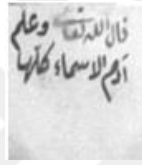 قال الله تعالى وعلم
آدم الاسماء كلها